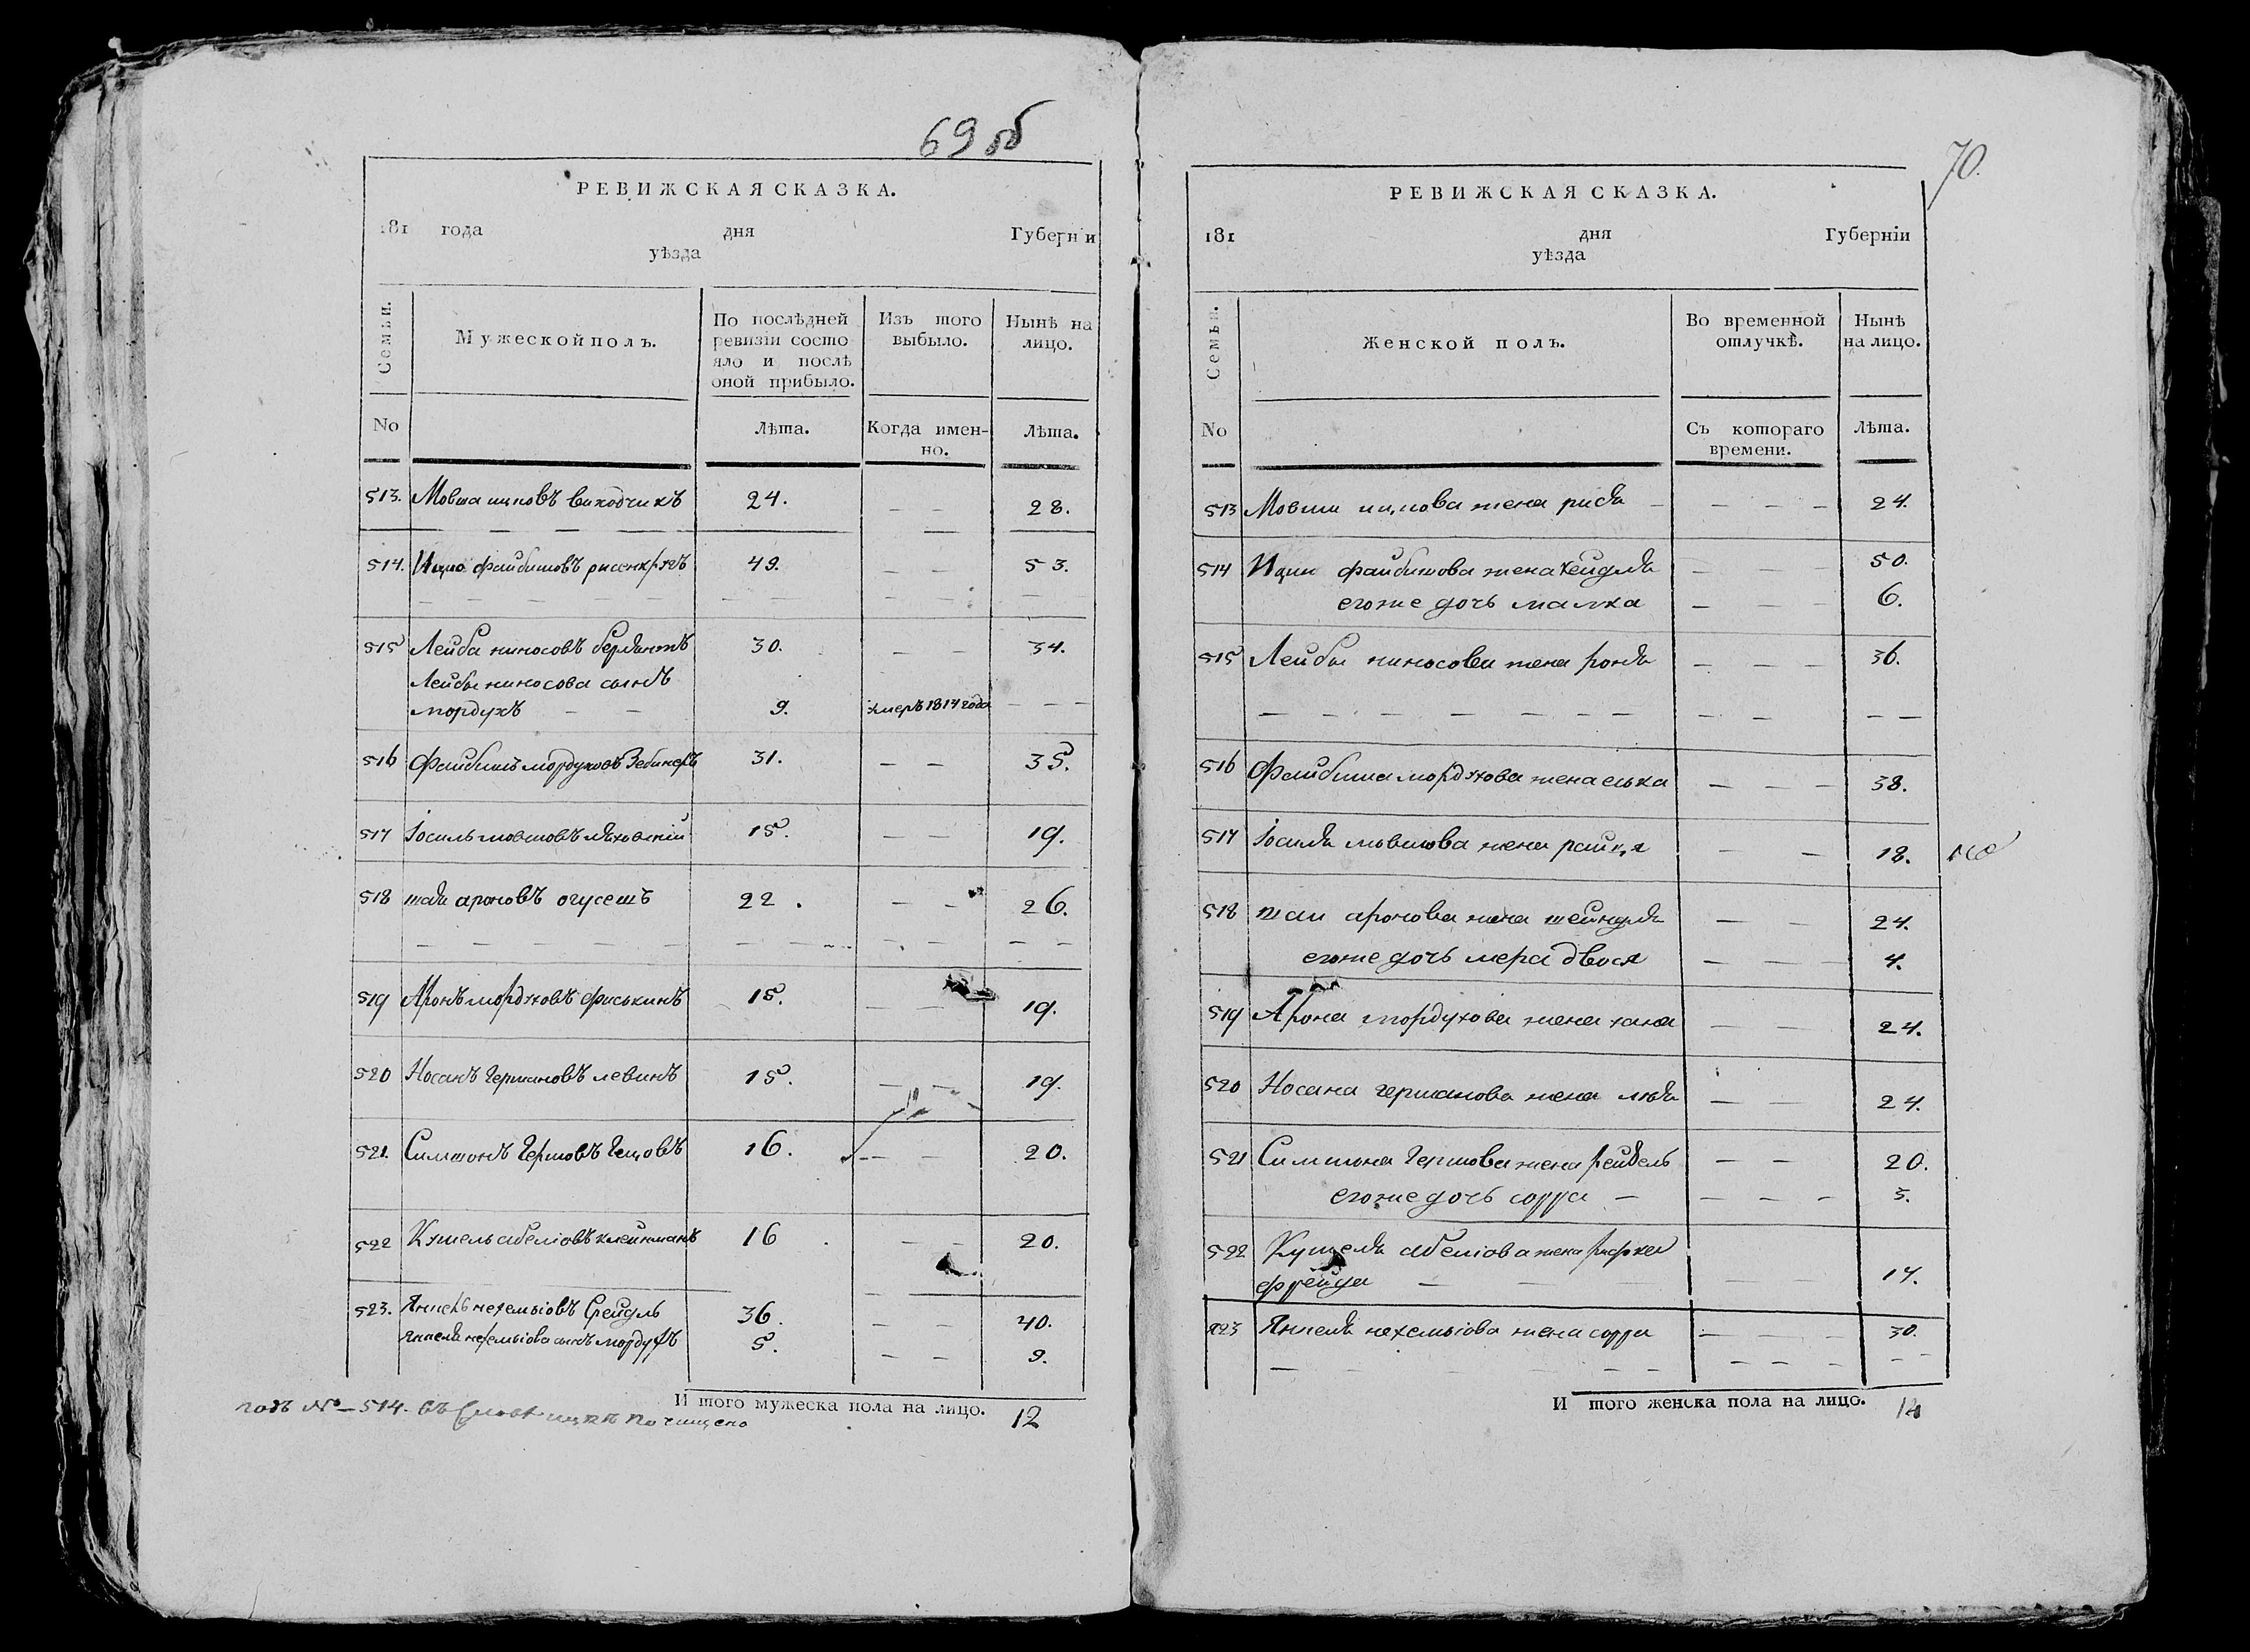 69 об
РЕВИЖСКАЯ СКАЗКА.
181 года дня Губерніи
уѣзда
Семьи.
Мужеской полъ.
По послѣдней ревизіи состояло и послѣ оной прибыло.
Изъ того выбыло.
Нынѣ на лицо.
No
Лѣта.
Когда именно.
Лѣта.
513. Мовша ицковъ 24. — — 28.
514. Ицко файбишовъ 49. — — 53.
515 Лейба пиносовъ 30. — — 34.
Лейбы пиносова сынъ
мордухъ — — 9. умеръ 1814 года — — —
516 Файбишъ мордуховъ 31. — — 35.
517 Іосель мовшовъ ляховскій 15. — — 19.
518 шая ароновъ огусешъ 22. — — 26.
519 Аронъ мордуховъ фиськинъ 15. — — 19.
520 Носанъ германовъ левинъ 15. — — 19.
521. Симшонъ Гершовъ 16. — — 20.
522 Кушель абеліовъ клейнманъ 16 — — 20.
523. Янкель нехеміовъ 36. — — 40.
Янкеля нехеміова сынъ мордухъ 5. — — 9.
И того мужеска пола на лицо. 12
подъ No 514. въ почищено
70.
РЕВИЖСКАЯ СКАЗКА.
181 дня Губерніи
уѣзда
Семьи.
Женской полъ.
Во временной отлучкѣ.
Нынѣ на лицо.
No
Съ котораго времени.
Лѣта.
513 Мовши ицкова жена рися — — — 24.
514 Ицки файбишова жена хейдля — — — 50.
егоже дочь малка — — — 6.
515 Лейбы пиносова жена роня — — — 36.
516 Файбиша мордухова жена еська — — — 38.
517 Іоселя мовшова жена райца — — 18.
518 шаи аронова жена шейндля — — 24.
егоже дочь мера двося — — — 4.
519 Арона мордухова жена хана — — 24.
520 Носана германова жена — — 24.
521 Симшона Гершова жена рейзель — — 20.
егоже дочь сорра — — — — 3.
522 Кушеля абеліова жена рифка
фрейда — — — — — 17.
523 Янкеля нехеміова жена сорра — — — 30.
И того женска пола на лицо.